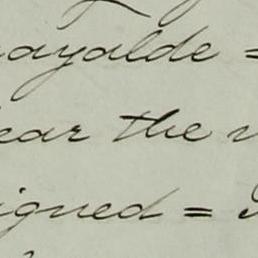 ayalde =
ear the
igned =